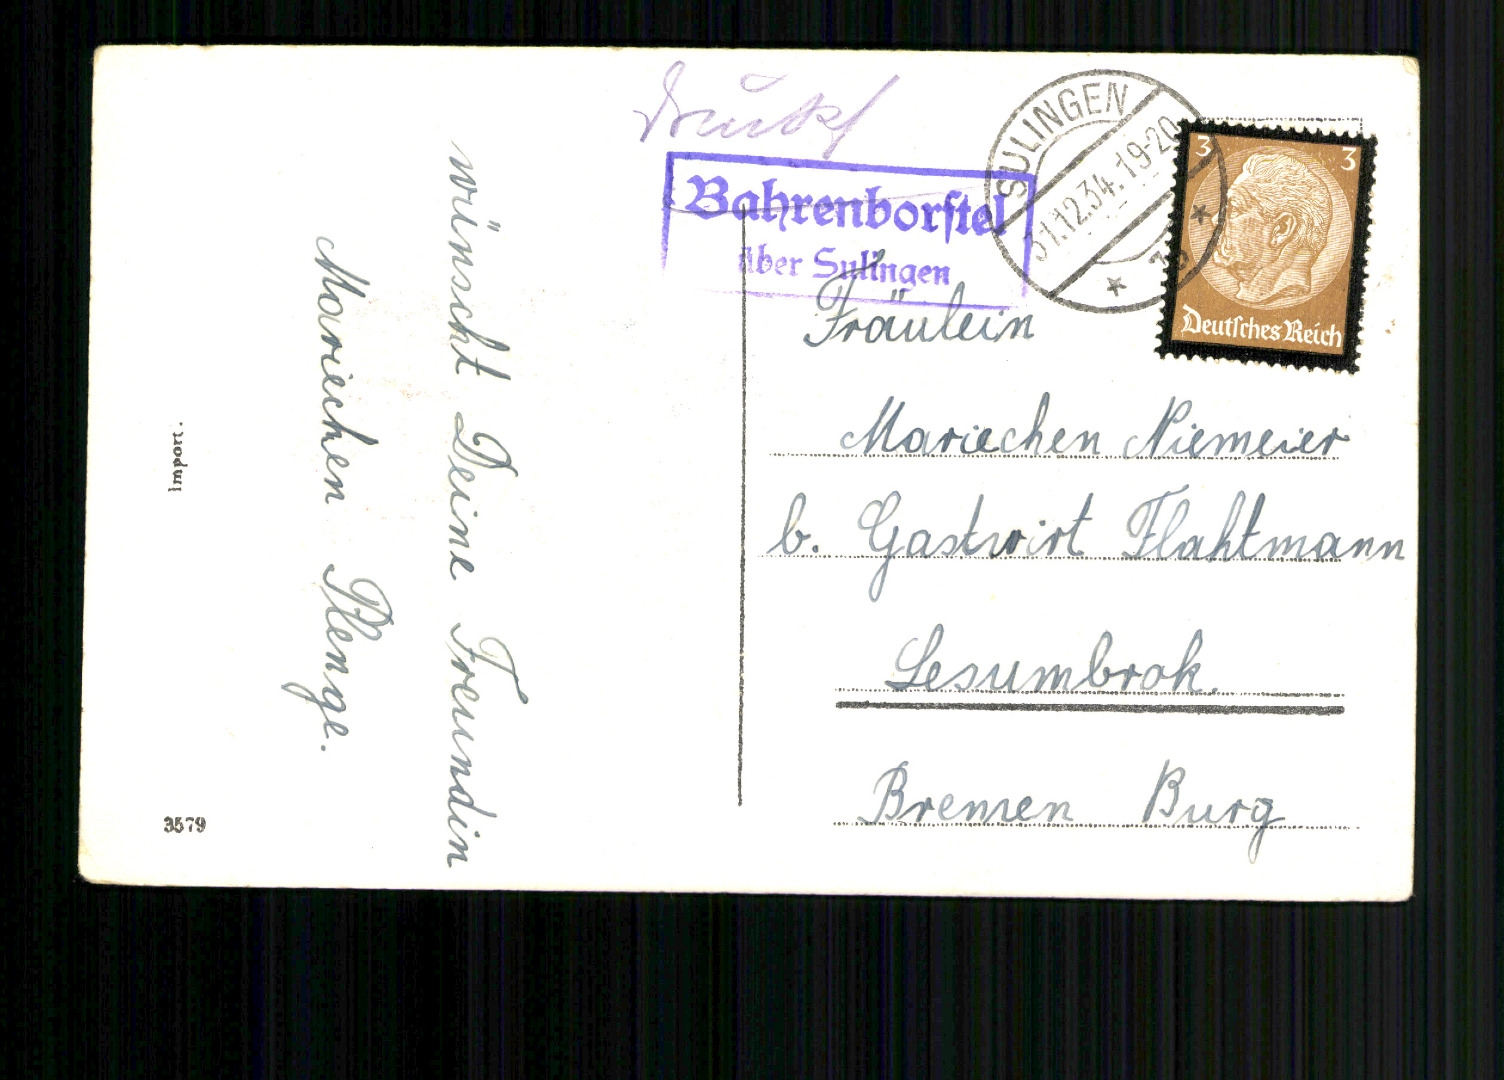 Drucks.
Bahrenborstel
über Sulingen
SULINGEN
31.12.34.19-20
3 3
Deutsches Reich
Fräulein
Mariechen Niemeier
b. Gastwirt Flahtmann
Lesumbrok.
Bremen Burg
wünscht Deine Freundin
Mariechen Plenge.
Import.
3579